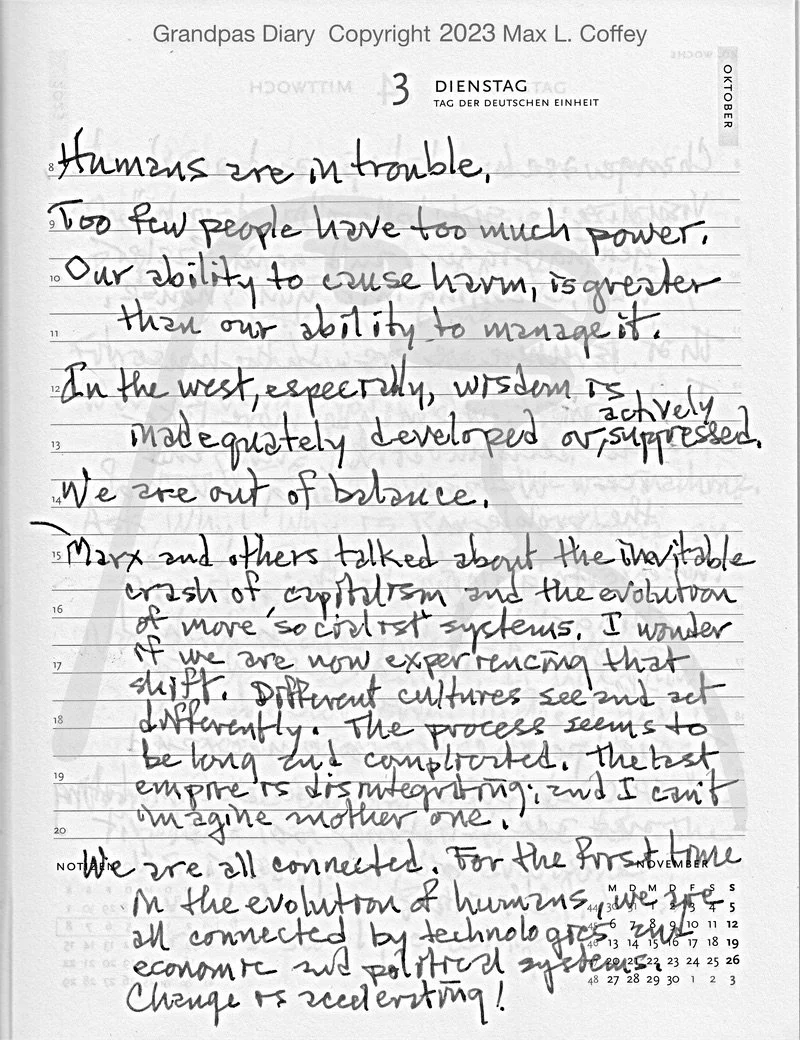 Grandpas Diary Copyright 2023 Max L. Coffey
3 DIENSTAG
TAG DER DEUTSCHEN EINHEIT
OKTOBER
8 Humans are in trouble.
9 Too few people have too much power.
10 Our ability to cause harm, is greater
11 than our ability to manage it.
12 In the west, especially, wisdom is
actively
13 inadequately developed or, suppressed.
14 We are out of balance.
15 Marx and others talked about the inevitable
crash of capitalism and the evolution
16 of more "socialist" systems. I wonder
17 if we are now experiencing that
shift. Different cultures see and act
18 differently. The process seems to
be long and complicated. The last
19 empire is disintegrating; and I can't
imagine another one.
20
NOTIZEN We are all connected. For the first time
NOVEMBER
in the evolution of humans, we are
all connected by technologies and
economic and political systems.
Change is accelerating!
M D M D F S S
44 30 31 1 2 3 4 5
45 6 7 8 9 10 11 12
46 13 14 15 16 17 18 19
47 20 21 22 23 24 25 26
48 27 28 29 30 1 2 3